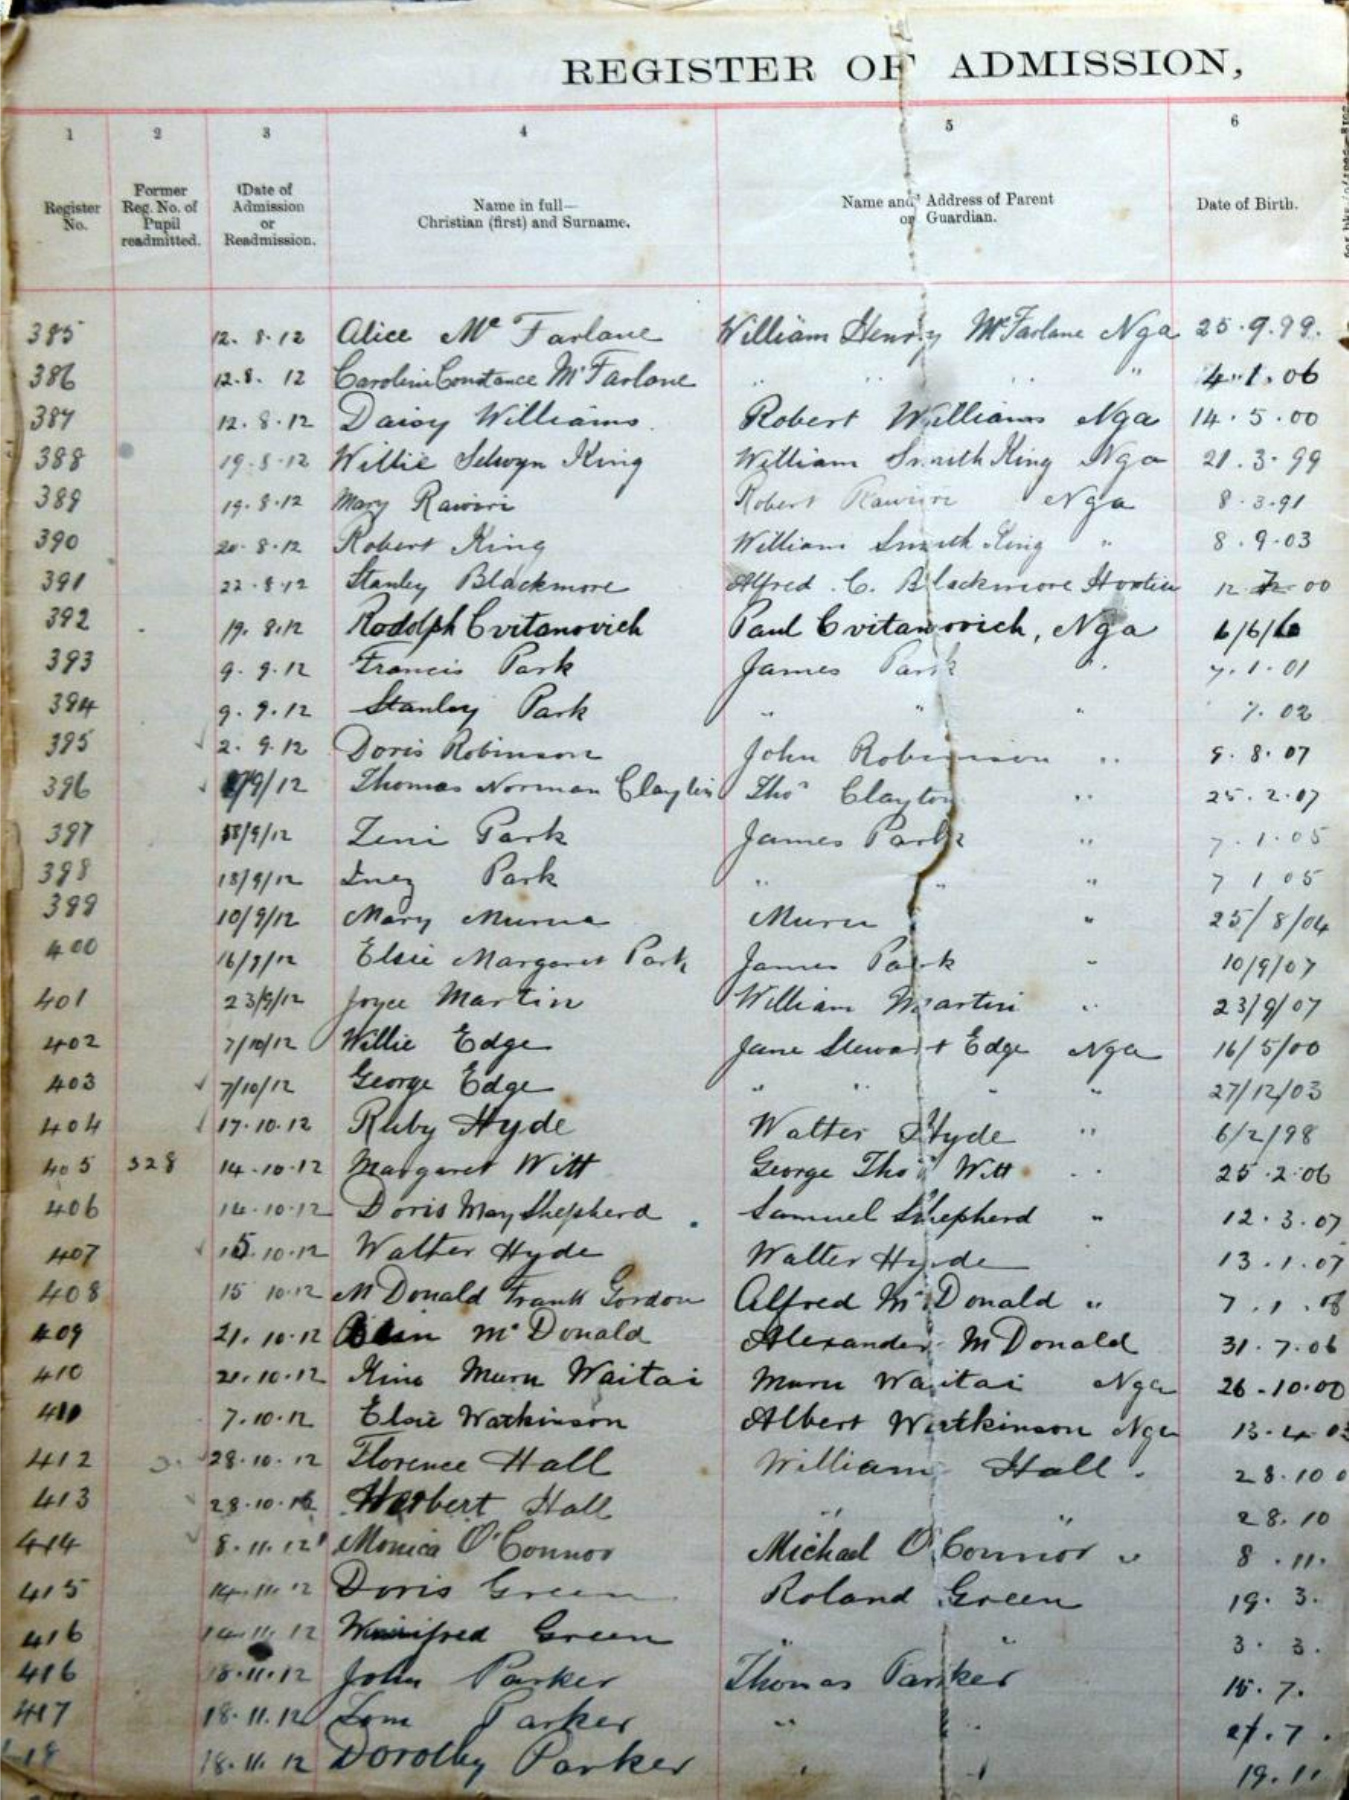 REGISTER OF ADMISSION,
1 2 3 4 5 6
Register No. Former Reg. No. of Pupil readmitted. Date of Admission or Readmission. Name in full— Christian (first) and Surname. Name and Address of Parent or Guardian. Date of Birth.
385 12. 8. 12 Alice Mc Farlane William Henry McFarlane Nga 25.9.99.
386 12.8. 12 Caroline Constance McFarlane " " " " 4.1.06
387 12.8.12 Daisy Williams. Robert Williams Nga 14.5.00
388 19.8.12 Willie Selwyn King William Smith King Nga 21.3.99
389 19.8.12 Mary Rawiri Robert Rawiri Nga 8.3.91
390 20.8.12 Robert King William Smith King " 8.9.03
391 22.8.12 Stanley Blackmore Alfred C. Blackmore 12 00
392 19.8.12 Rodolph Cvitanovich Paul Cvitanovich, Nga 6/6/
393 9.9.12 Francis Park James Park " 7.1.01
394 9.9.12 Stanley Park " " " 7.02
395 2.9.12 Doris Robinson John Robinson " 9.8.07
396 /9/12 Thomas Norman Clayton Thos Clayton " 25.2.07
397 /9/12 Zeni Park James Park " 7.1.05
398 13/9/12 Inez Park " " " 7 1 05
399 10/9/12 Mary Muru " 25/8/04
400 16/9/12 Elsie Margaret Park James Park " 10/9/07
401 23/9/12 Joyce Martin William Martin " 23/9/07
402 7/10/12 Willie Edge Jane Stewart Edge Nga 16/5/00
403 7/10/12 George Edge " " " " 27/12/03
404 17.10.12 Ruby Hyde Walter Hyde " 6/2/98
405 328 14.10.12 Margaret Witt George Thos Witt " 25.2.06
406 14.10.12 Doris May Shepherd Samuel Shepherd " 12.3.07
407 15.10.12 Walter Hyde Walter Hyde 13.1.07
408 15 10.12 McDonald Frank Gordon Alfred McDonald " 7.1.
409 21.10.12 McDonald Alexander McDonald 31.7.06
410 21.10.12 Muru Waitai Muru Waitai Nga 26.10.00
7.10.12 Elsie Watkinson Albert Watkinson Nga 13.4.03
412 28.10.12 Florence Hall William Hall. 28.10
413 28.10. Herbert Hall " " 28.10
414 8.11.12 Monica O'Connor Michael O'Connor " 8.11.
415 14.11.12 Doris Green Roland Green 19.3.
416 14.11.12 Winifred Green " " 3.3.
416 18.11.12 John Parker Thomas Parker 15.7.
417 18.11.12 Tom Parker " " .7.
18 18.11.12 Dorothy Parker " " 19.11